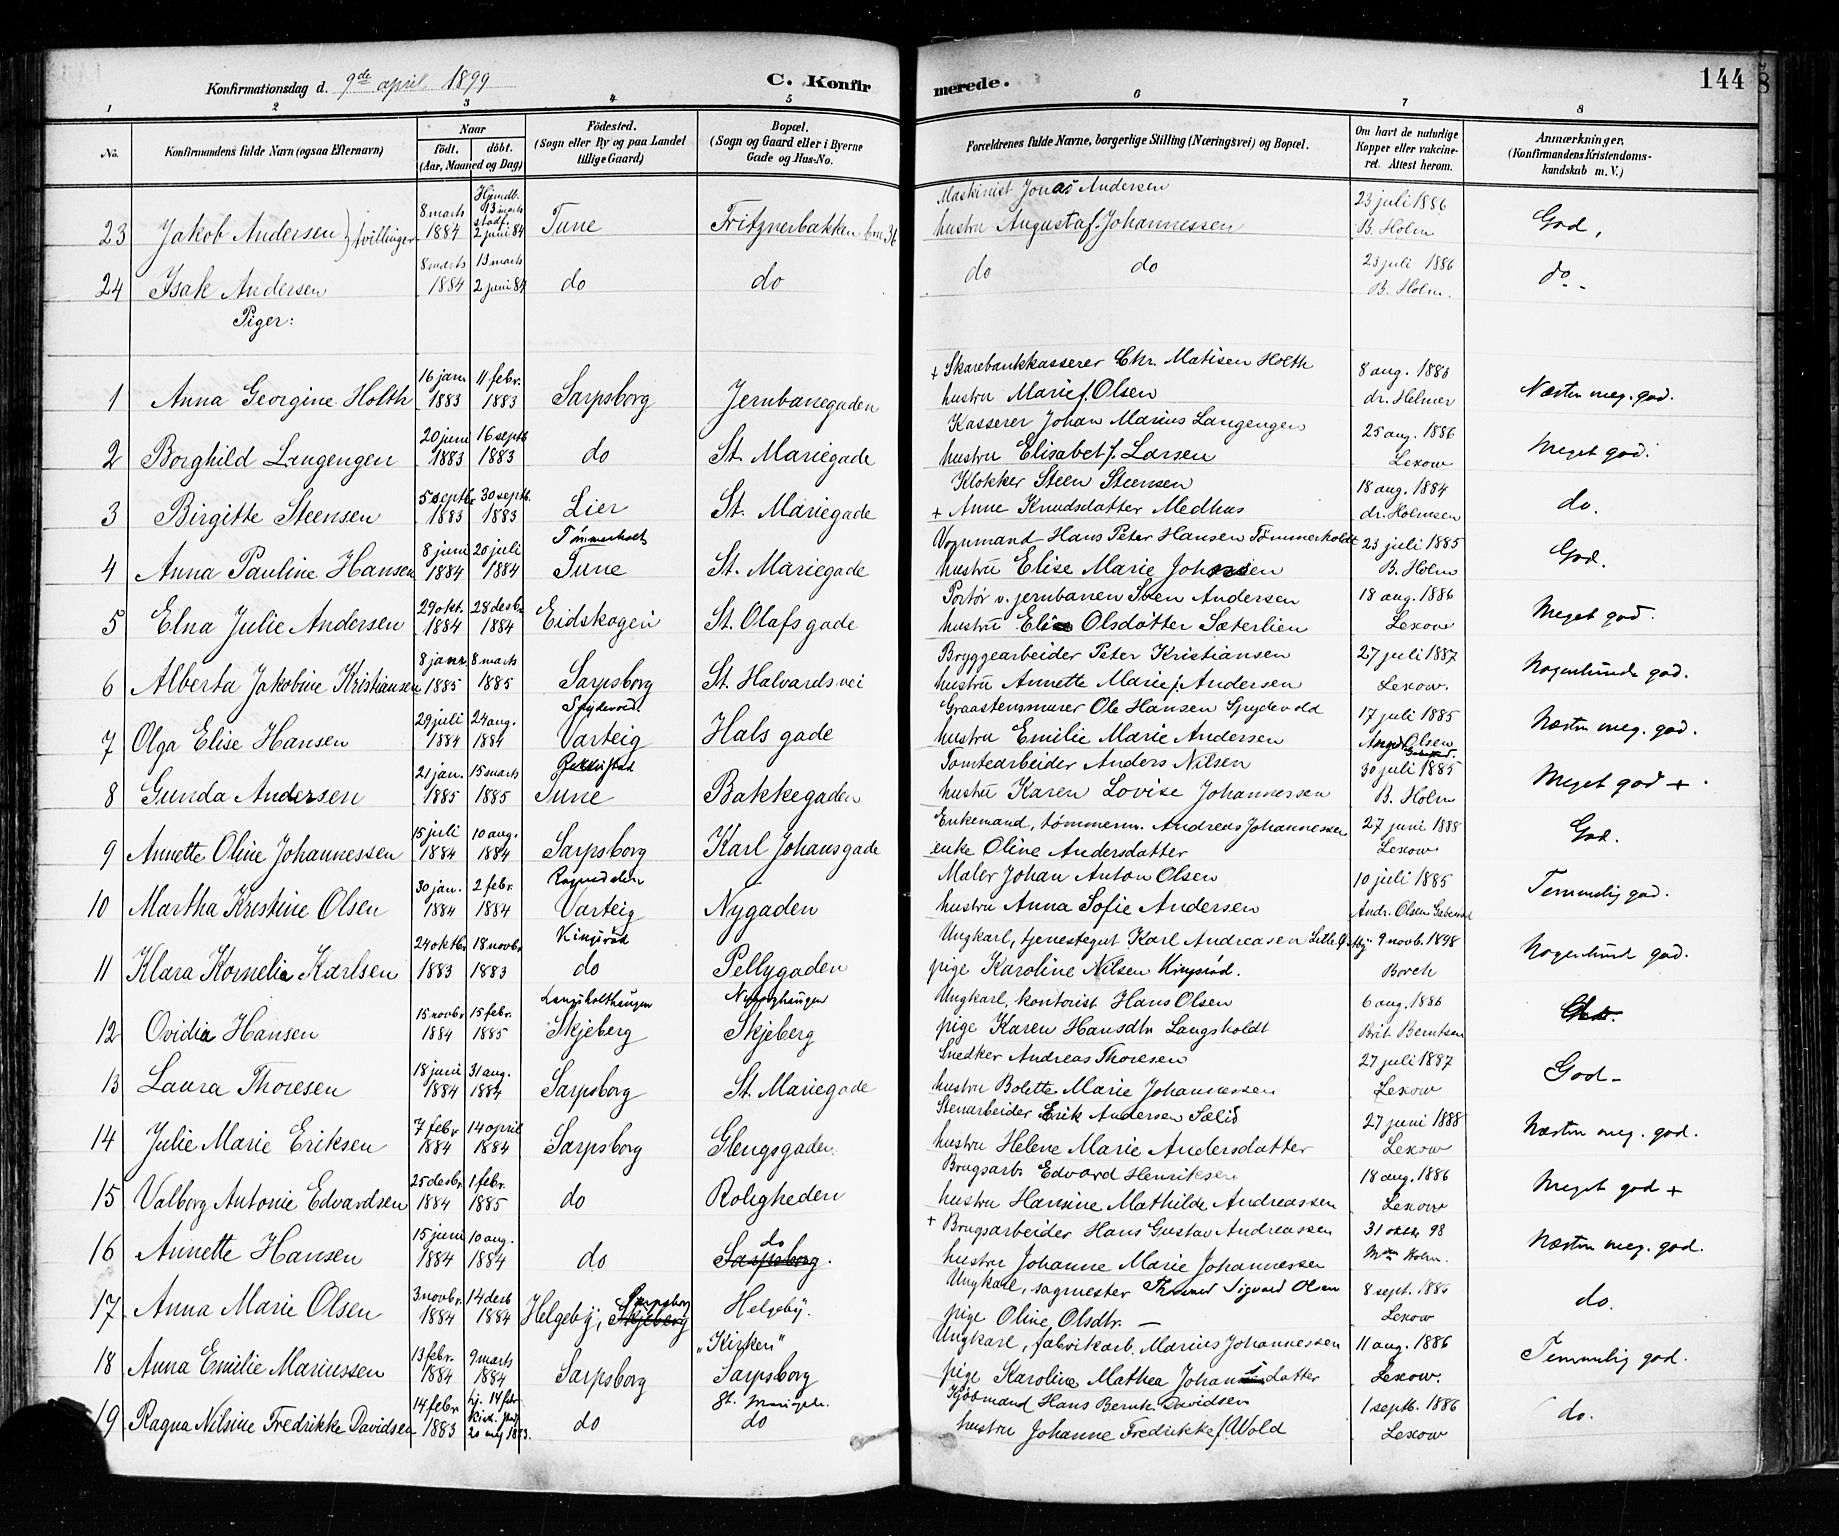 Konfirmationsdag d. 9de april 1899
C. Konfirmerede.
144
1 2 3 4 5 6 7 8
No. Konfirmandens fulde Navn (ogsaa Efternavn) Naar født. døbt. (Aar, Maaned og Dag) Fødested. (Sogn eller By og paa Landet tillige Gaard) Bopæl. (Sogn og Gaard eller i Byerne Gade og Hus-No. Forældrenes fulde Navne, borgerlige Stilling (Næringsvei) og Bopæl. Om havt de naturlige Kopper eller vakcineret. Attest herom. Anmærkninger. (Konfirmandens Kristendomskundskab m. V.)
23 Jakob Andersen } tvillinger 8 marts 1884 Hjemdb. 13 marts stadf. 2 juni 84 Tune Fritznerbakken Maskinist Jonas Andersen hustru Augusta f. Johannessen 23 juli 1886 B. Holm God,
24 Isak Andersen 8 marts 1884 13 marts 2 juni 84 do do do do 23 juli 1886 B. Holm. do.
Piger:
1 Anna Georgine Holth 16 janr 1883 11 febr. 1883 Sarpsborg Jernbanegaden + Skarebankkasserer Chr. Matisen Holth hustru Marie f. Olsen 8 aug. 1883 dr. Helmer Næsten meg. god.
2 Borghild Langengen 20 juni 1883 16 septb 1883 do St. Mariegade Kasserer Johan Marius Langengen hustru Elisabet f. Larsen 25 aug. 1886 Lexow Meget god.
3 Birgitte Steensen 5 septbr 1883 30 septb. 1883 Lier St. Mariegade Klokker Steen Steensen + Anne Knudsdatter Medhus 18 aug. 1884 dr. Holmsen do.
4 Anna Pauline Hansen 8 juni 1884 20 juli 1884 Tømmerholt Tune St. Mariegade Vognmand Hans Peter Hansen Tømmerholdt hustru Elise Marie Johansen 23 juli 1885 B. Holm God.
5 Elna Julie Andersen 29 okt. 1884 28 desbr 1884 Eidskogen St. Olafs gade Portør v. jernbanen Sven Andersen hustru Elise Olsdatter Sæterlien 18 aug. 1886 Lexow Meget god.
6 Alberta Jakobine Kristiansen 8 janr 1885 8 marts 1885 Sarpsborg St. Halvards vei Bryggearbeider Peter Kristiansen hustru Annette Marie f. Andersen 27 juli 1887 Lexow. Nogenlunde god.
7 Olga Elise Hansen 29 juli 1884 24 aug. 1884 Spydevold Varteig Hals gade Graastensmurer Ole Hansen Spydevold hustru Emilie Marie Andersen 17 juli 1885 Olsen Næsten meg. god.
8 Gunda Andersen 21 jan. 1885 15 marts 1885 Tune Bakkegaden Tomtearbeider Anders Nilsen hustru Karen Lovise Johannessen 30 juli 1885 B. Holm Meget god +
9 Annette Oline Johannessen 15 juli 1884 10 aug. 1884 Sarpsborg Karl Johansgade Enkemand, tømmerm. Andreas Johannessen enke Oline Andersdatter 27 juni 1888 Lexow God.
10 Martha Kristine Olsen 30 jan. 1884 2 febr. 1884 Varteig Nygaden Maler Johan Anton Olsen hustru Anna Sofie Andersen 10 juli 1885 Andr. Olsen Temmelig god.
11 Klara Kornelia Karlsen 24 oktbr 1883 18 novbr 1883 Kingsrød do Pellygaden Ungkarl, tjenestegut Karl Andreasen pige Karoline Nilsen Kingsrød. 9 novb. 1898 Borch Nogenlunde god.
12 Ovidia Hansen 15 novbr 1884 15 febr. 1885 Langsholthaugen Skjeberg Skjeberg Ungkarl, kontorist Hans Olsen pige Karen Hansdtr Langsholdt 6 aug. 1886 Brit. Berntsen
13 Laura Thoresen 18 juni 1884 31 aug. 1884 Sarpsborg St. Mariegade Snedker Andreas Thoresen hustru Bolette Marie Johannessen 27 juli 1887 Lexow God
14 Julie Marie Eriksen 7 febr 1884 14 april 1884 Sarpsborg Glengsgaden Stenarbeider Erik Andersen Sælid hustru Helene Marie Andersdatter 27 juni 1888 Lexow Næsten meg. god.
15 Valborg Antonie Edvardsen 25 desbr. 1884 1 febr. 1885 do Roligheden Brugsarb. Edvard Henriksen hustru Hansine Mathilde Andreassen 18 aug. 1886 Lexow Meget god +
16 Annette Hansen 15 juni 1884 10 aug. 1884 do do Sarpsborg. + Brugsarbeider Hans Gustav Andreassen hustru Johanne Marie Johannessen 31 oktbr 98 Holm. Næsten meg. god.
17 Anna Marie Olsen 3 novbr. 1884 14 desb 1884 Helgeby, Sarpsborg Skjeberg Helgeby. Ungkarl, sagmester Sigvard Olsen pige Oline Olsdtr. — 8 sept. 1885 Lexow do.
18 Anna Emilie Mariussen 13 febr. 1884 9 marts 1884 Sarpsborg „Kirken" Sarpsborg Ungkarl, fabrikarb. Marius Johannessen pige Karoline Mathea Johansdatter 11 aug. 1886 Lexow. Temmelig god.
19 Ragna Nilsine Fredrikke Davidsen 14 febr. 1883 hj. 14 febr. 20 maj 1883. do St. Mariegade. do Kjøbmand Hans Bernh. Davidsen hustru Johanne Fredrikke f. Wold 1 septb. 1886 Lexow do.